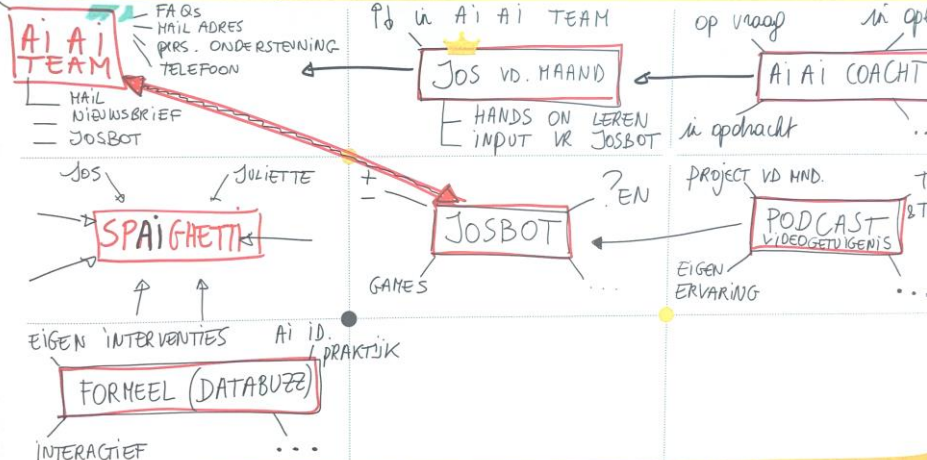 Ai Ai
TEAM
FAQs
MAIL ADRES
PERS. ONDERSTEUNING
TELEFOON
MAIL
NIEUWSBRIEF
JOSBOT
in Ai Ai TEAM
JOS VD. MAAND
HANDS ON LEREN
INPUT VR JOSBOT
op vraag
in op
Ai Ai COACHT
in opdracht
...
JOS
JULIETTE
SPAiGHETTI
+
-
?EN
JOSBOT
GAMES
...
PROJECT VD MND.
T
&T
PODCAST
VIDEOGETUIGENIS
EIGEN
ERVARING
...
EIGEN INTERVENTIES
Ai ID.
PRAKTIJK
FORMEEL (DATABUZZ)
INTERACTIEF
...